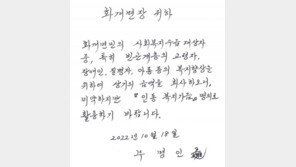 화개면장 귀하
화개면민의 사회복지수급 대상자
중, 특히 빈곤계층의 고령자,
장애인, 질병자, 아동 등의 복지향상을
위하여 상기의 금액을 희사하오니,
미약하지만 "인동 복지기금" 명의로
활용하기 바랍니다.
2022년 10월 18일
무 명 인